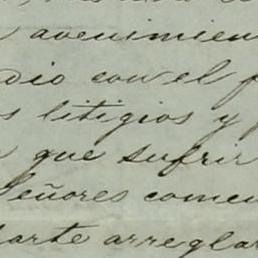 avenimien
dio con el p
s litigios y p
que sufrir
Señores comer
parte arreglar